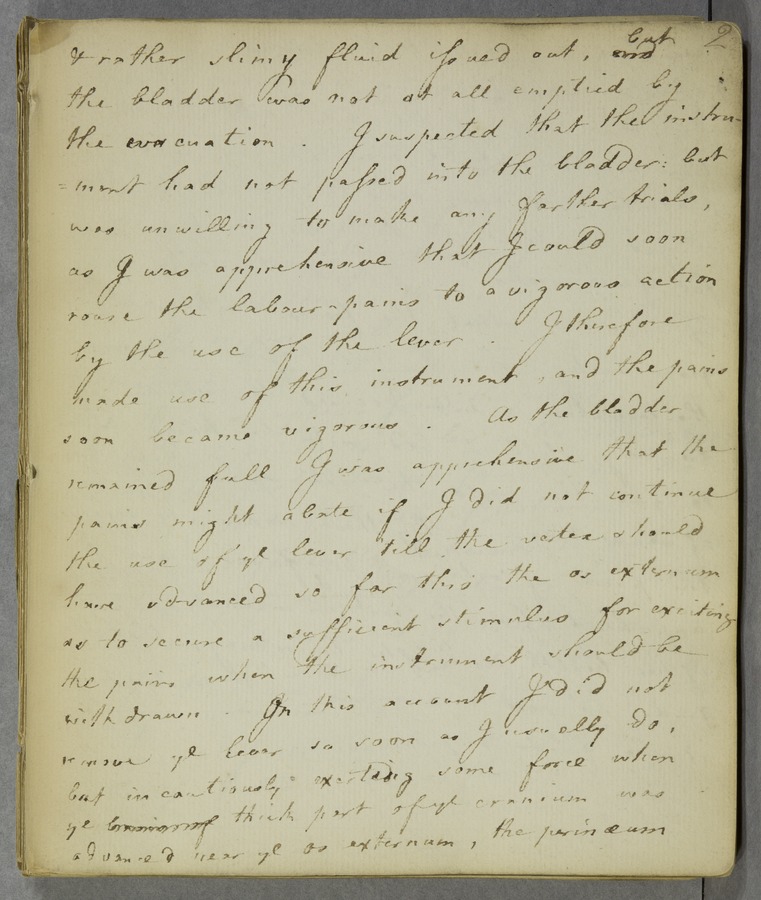 2
& rather slimy fluid issued out, but
the bladder was not at all emptied by
the evacuation. I suspected that the instru-
=ment had not passed into the bladder: but
was unwilling to make any farther trials,
as I was apprehensive that I could soon
rouse the labour-pains to a vigorous action
by the use of the lever. I therefore
made use of this instrument, and the pains
soon became vigorous. As the bladder
remained full I was apprehensive that the
pains might abate if I did not continue
the use of ye lever till the vertex should
have advanced so far thro the os externum
as to secure a sufficient stimulus for exciting
the pains when the instrument should be
withdrawn. On this account I did not
remove ye lever so soon as I usually do,
but incautiously exerting some force when
ye thick part of ye cranium was
advanced near ye os externum, the perinæum